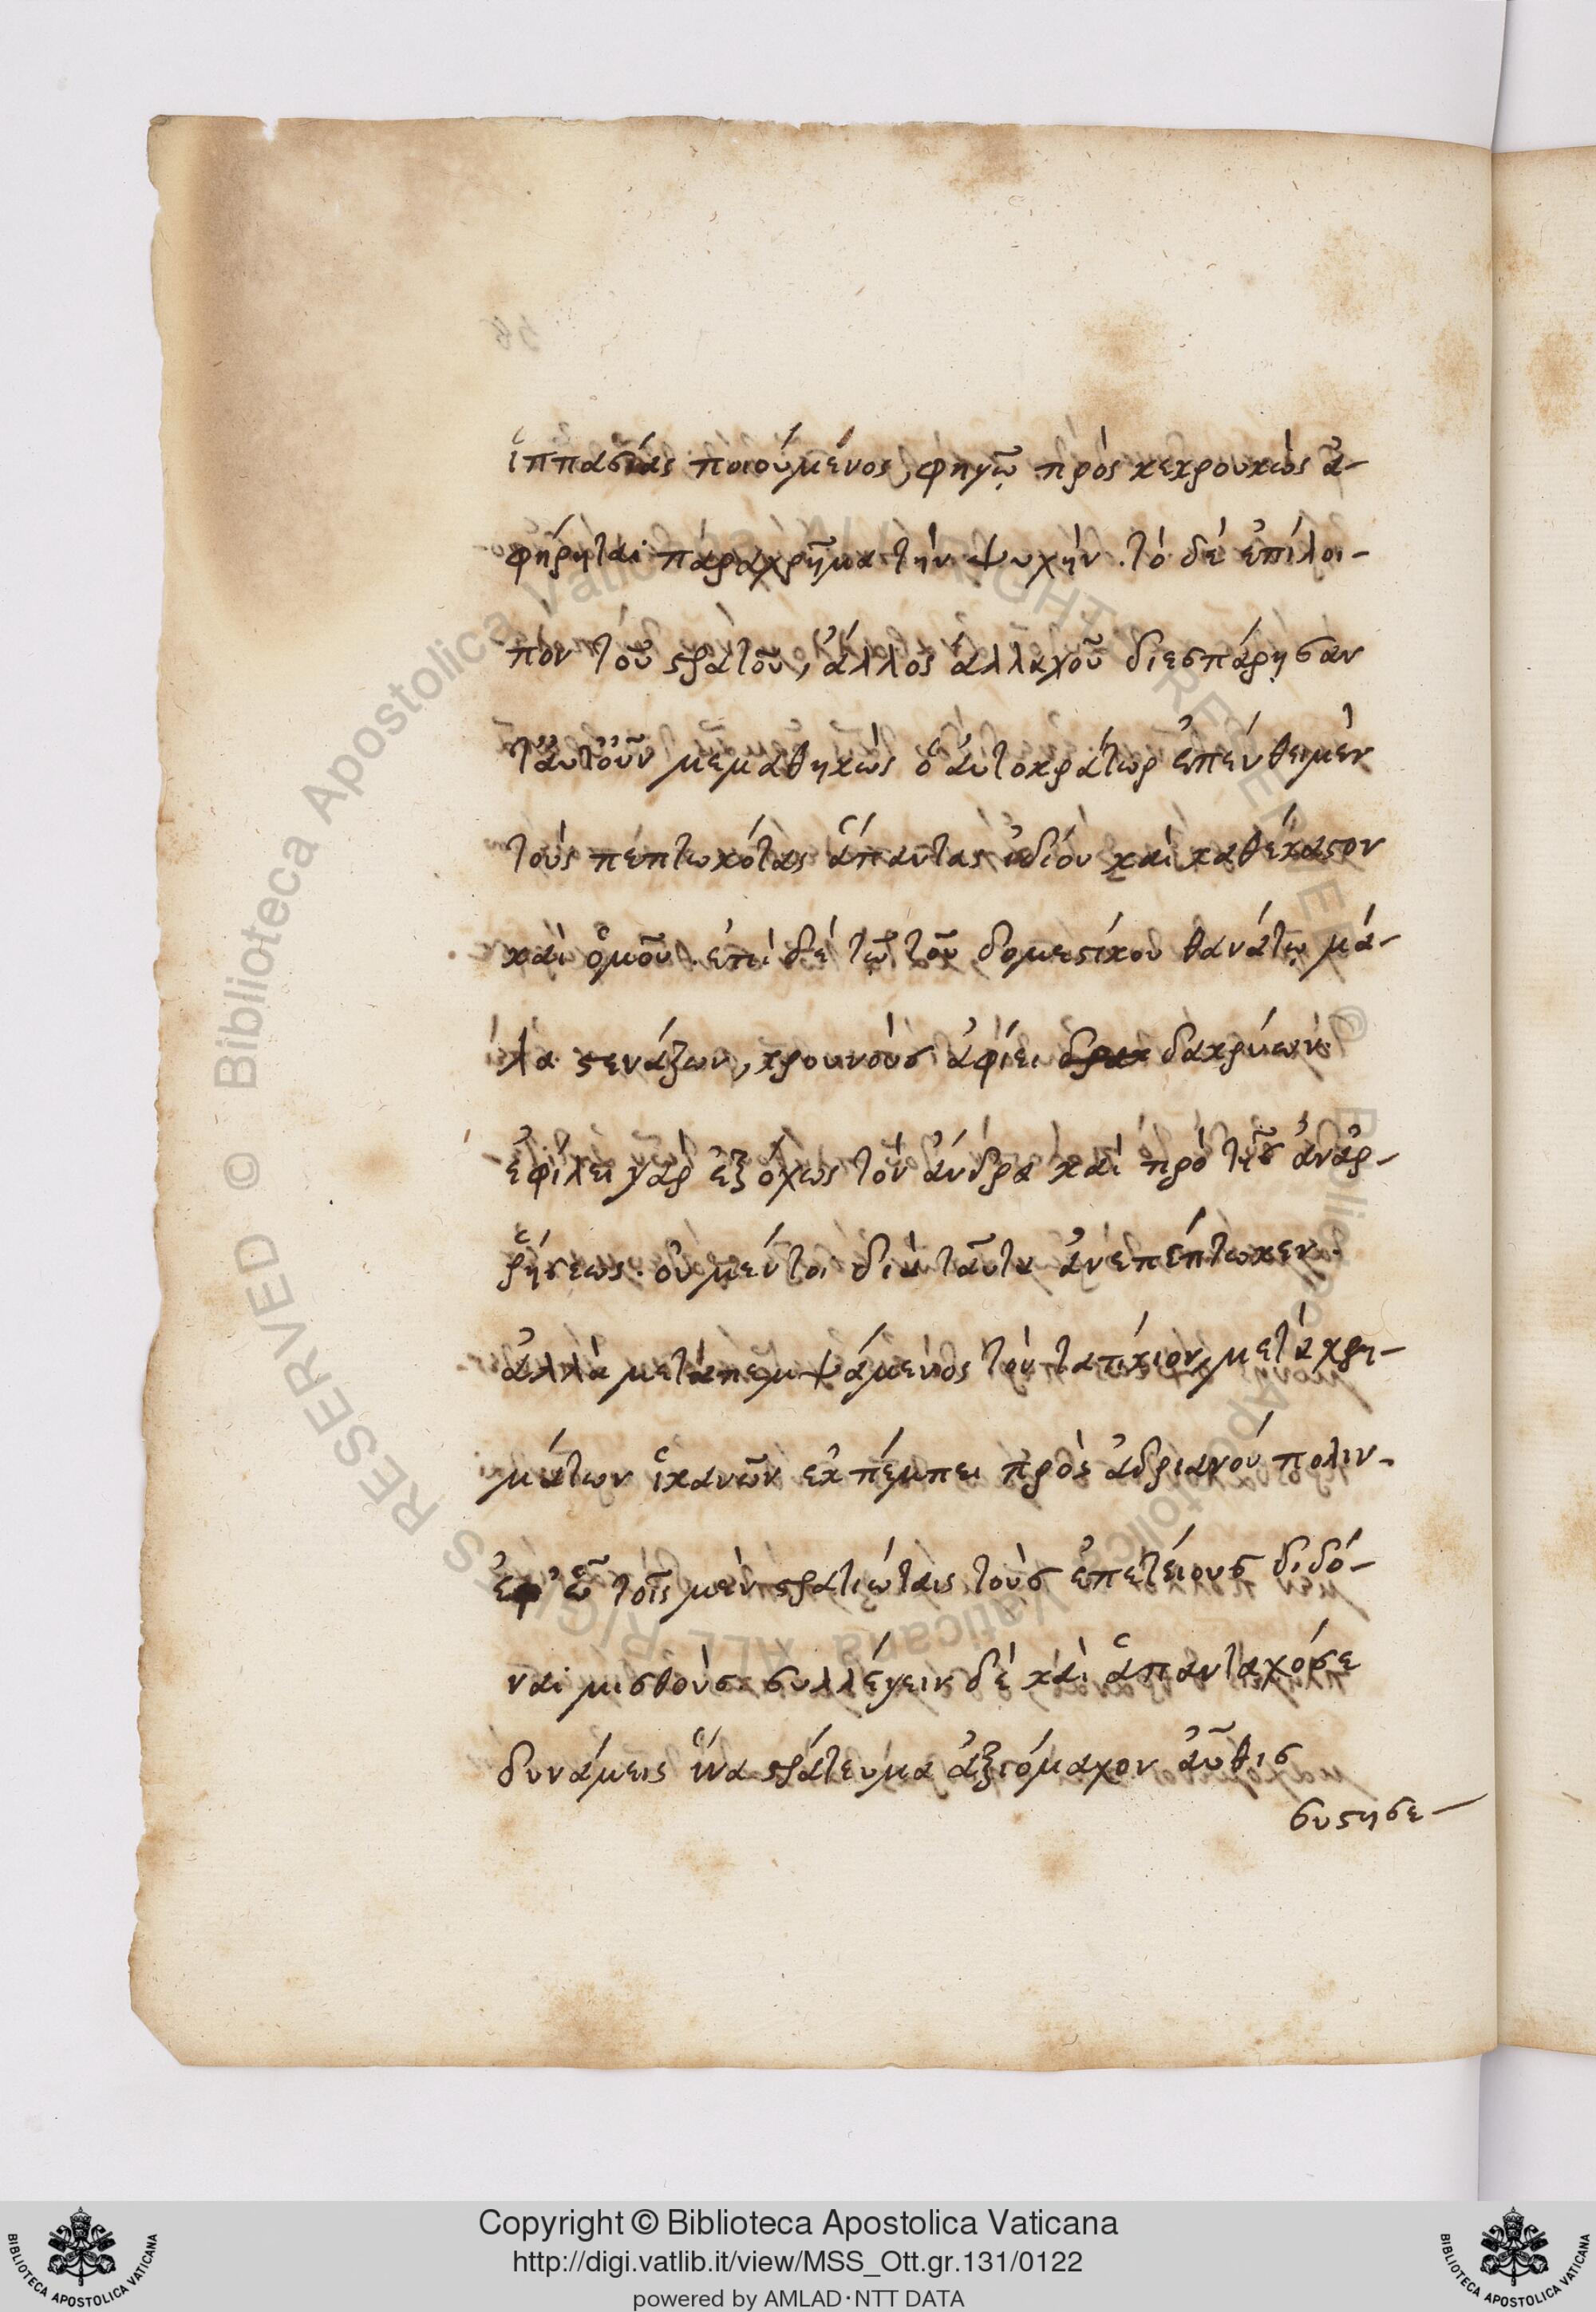 ἱππασίας ποιούμενος, φηγῶ πρὸς κεκρουκὼς ἀ-
φήρηται παραχρῆμα τὴν ψυχήν. τὸ δὲ ἐπίλοι-
πον τοῦ στρατοῦ, ἄλλος ἀλλαχοῦ διεσπάρησαν
ταῦτ' οὖν μεμαθηκὼς ὁ αὐτοκράτωρ ἐπένθει μὲν
τοὺς πεπτωκότας ἅπαντας ἰδίου καὶ καθέκαστον
καὶ ὁμοῦ. ἐπὶ δὲ τῷ τοῦ δομεστίκου θανάτῳ μά-
λα στενάζων, κρουνοὺς ἀφίει δακρύων.
ἐφίλει γὰρ ἐξόχως τὸν ἄνδρα καὶ πρὸ τῆς ἀναρ-
ῥήσεως. οὐ μέντοι διὰ ταῦτα ἀνεπεπτώκει.
ἀλλὰ μεταπεμψάμενος τὸν ταπίκιον, μετὰ χρη-
μάτων ἱκανῶν ἐκπέμπει πρὸς ἀδριανού πολιν.
ἐφ' ᾧ τοῖς μὲν στρατιώταις τοὺς ἐπετείους διδό-
ναι μισθοὺς συλλέγειν δὲ καὶ ἁπανταχόσε
δυνάμεις ἵνα στράτευμα ἀξιόμαχον αὖθις
συστησε-
Copyright © Biblioteca Apostolica Vaticana
http://digi.vatlib.it/view/MSS_Ott.gr.131/0122
powered by AMLAD·NTT DATA
BIBLIOTECA APOSTOLICA VATICANA
BIBLIOTECA APOSTOLICA VATICANA
© Biblioteca Apostolica Vaticana ALL RIGHTS RESERVED
© Biblioteca Apostolica Vaticana ALL RIGHTS RESERVED